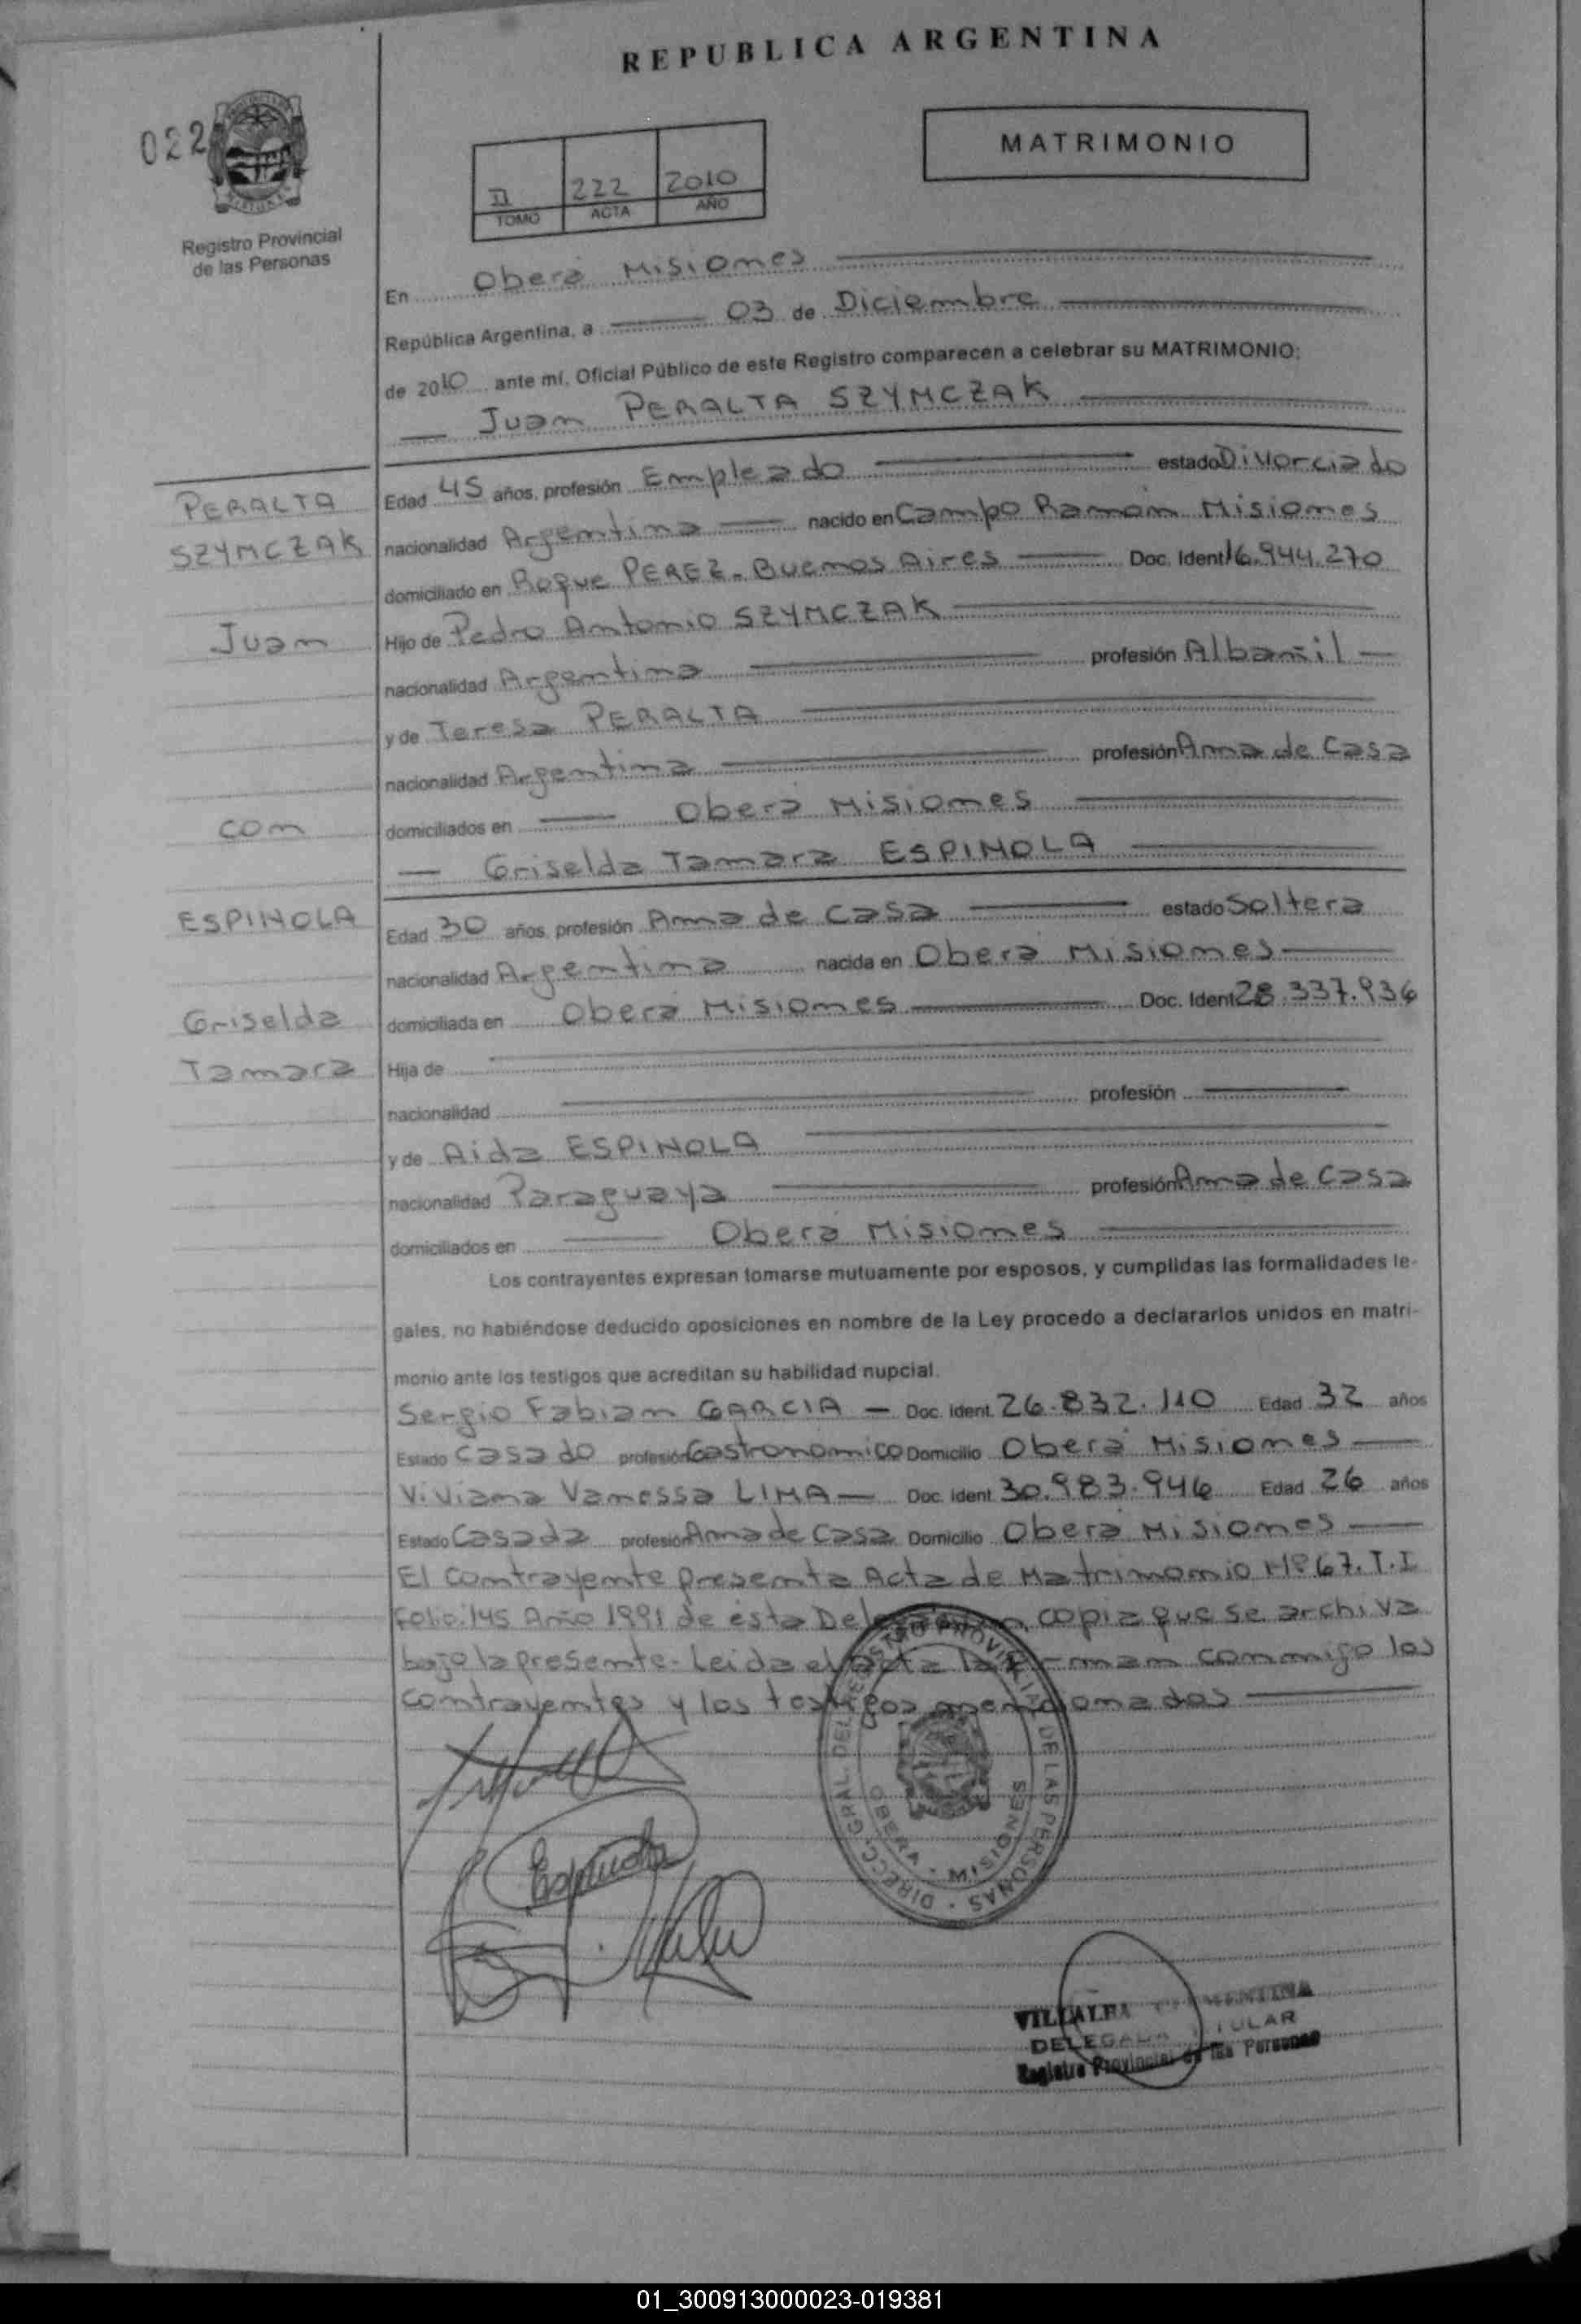 REPUBLICA ARGENTINA
022
MATRIMONIO
II 222 2010
TOMO ACTA AÑO
Registro Provincial
de las Personas
En Oberá Misiones
República Argentina, a 03 de Diciembre
de 2010 ante mí, Oficial Público de este Registro comparecen a celebrar su MATRIMONIO:
Juan PERALTA SZYMCZAK
PERALTA
SZYMCZAK
Juan
con
ESPINOLA
Griselda
Tamara
Edad 45 años, profesión Empleado estado Divorciado
nacionalidad Argentina nacido en Campo Ramón Misiones
domiciliado en Roque PEREZ - Buenos Aires Doc. Ident 16.944.270
Hijo de Pedro Antonio SZYMCZAK
nacionalidad Argentina profesión Albañil
y de Teresa PERALTA
nacionalidad Argentina profesión Ama de Casa
domiciliados en Oberá Misiones
Griselda Tamara ESPINOLA
Edad 30 años, profesión Ama de Casa estado Soltera
nacionalidad Argentina nacida en Oberá Misiones
domiciliada en Oberá Misiones Doc. Ident 28.337.936
Hija de
nacionalidad profesión
y de Aida ESPINOLA
nacionalidad Paraguaya profesión Ama de Casa
domiciliados en Oberá Misiones
Los contrayentes expresan tomarse mutuamente por esposos, y cumplidas las formalidades le-
gales, no habiéndose deducido oposiciones en nombre de la Ley procedo a declararlos unidos en matri-
monio ante los testigos que acreditan su habilidad nupcial.
Sergio Fabian GARCIA - Doc. Ident. 26.832.110 Edad 32 años
Estado Casado profesión Gastronómico Domicilio Oberá Misiones
Viviana Vanessa LIMA - Doc. Ident. 30.983.946 Edad 26 años
Estado Casada profesión Ama de Casa Domicilio Oberá Misiones
El contrayente presenta Acta de Matrimonio Nº 67. T.I
Folio: 145 Año 1991 de ésta Delegación, copia que se archiva
bajo la presente. Leida el Acta la firman conmigo los
contrayentes y los testigos mencionados
DIRECC. GRAL. DEL REGISTRO PROVINCIAL DE LAS PERSONAS
OBERA - MISIONES
Espinola
VILLALBA CLEMENTINA
DELEGADA TITULAR
Registro Provincial de las Personas
01_300913000023-019381